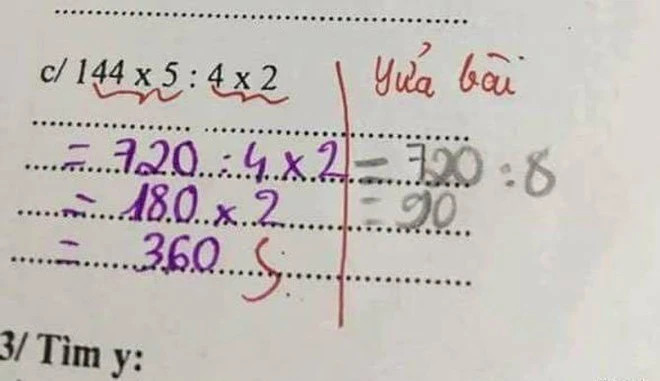 c/ 144 x 5 : 4 x 2
Sửa bài
= 720 : 4 x 2
= 180 x 2
= 360 S
= 720 : 8
= 90
3/ Tìm y: